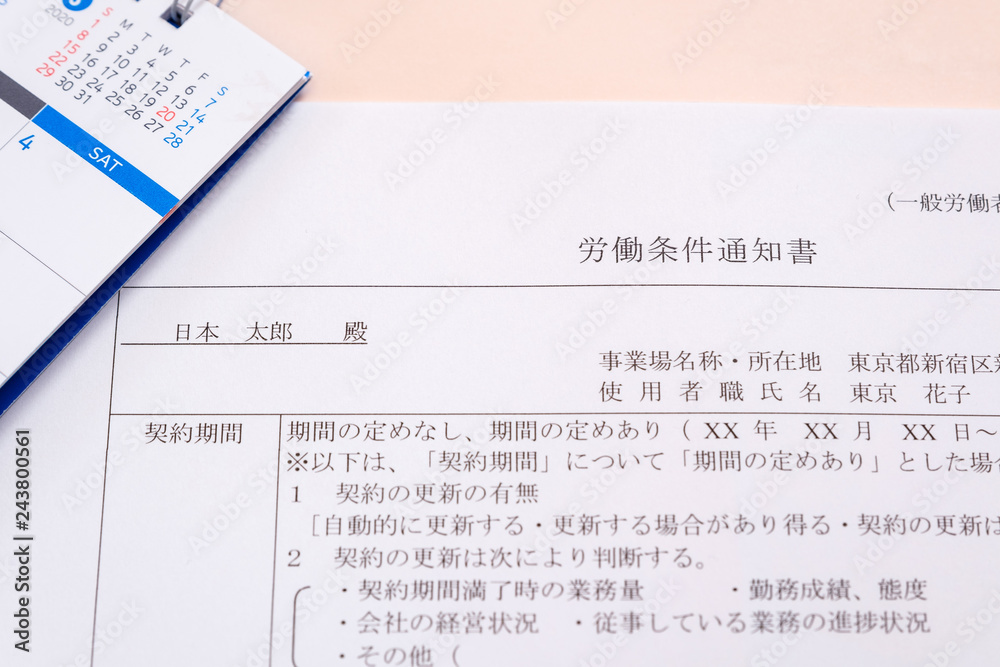 2020
S M T W T F S
1 2 3 4 5 6 7
8 9 10 11 12 13 14
15 16 17 18 19 20 21
22 23 24 25 26 27 28
29 30 31
SAT
4
（一般労働者
労働条件通知書
日本 太郎 殿
事業場名称・所在地 東京都新宿区新
使用者職氏名 東京 花子
契約期間
期間の定めなし、期間の定めあり（ XX 年 XX 月 XX 日～
※以下は、「契約期間」について「期間の定めあり」とした場合
1 契約の更新の有無
［自動的に更新する・更新する場合があり得る・契約の更新は
2 契約の更新は次により判断する。
・契約期間満了時の業務量 ・勤務成績、態度
・会社の経営状況 ・従事している業務の進捗状況
・その他（
Adobe Stock | #243800561